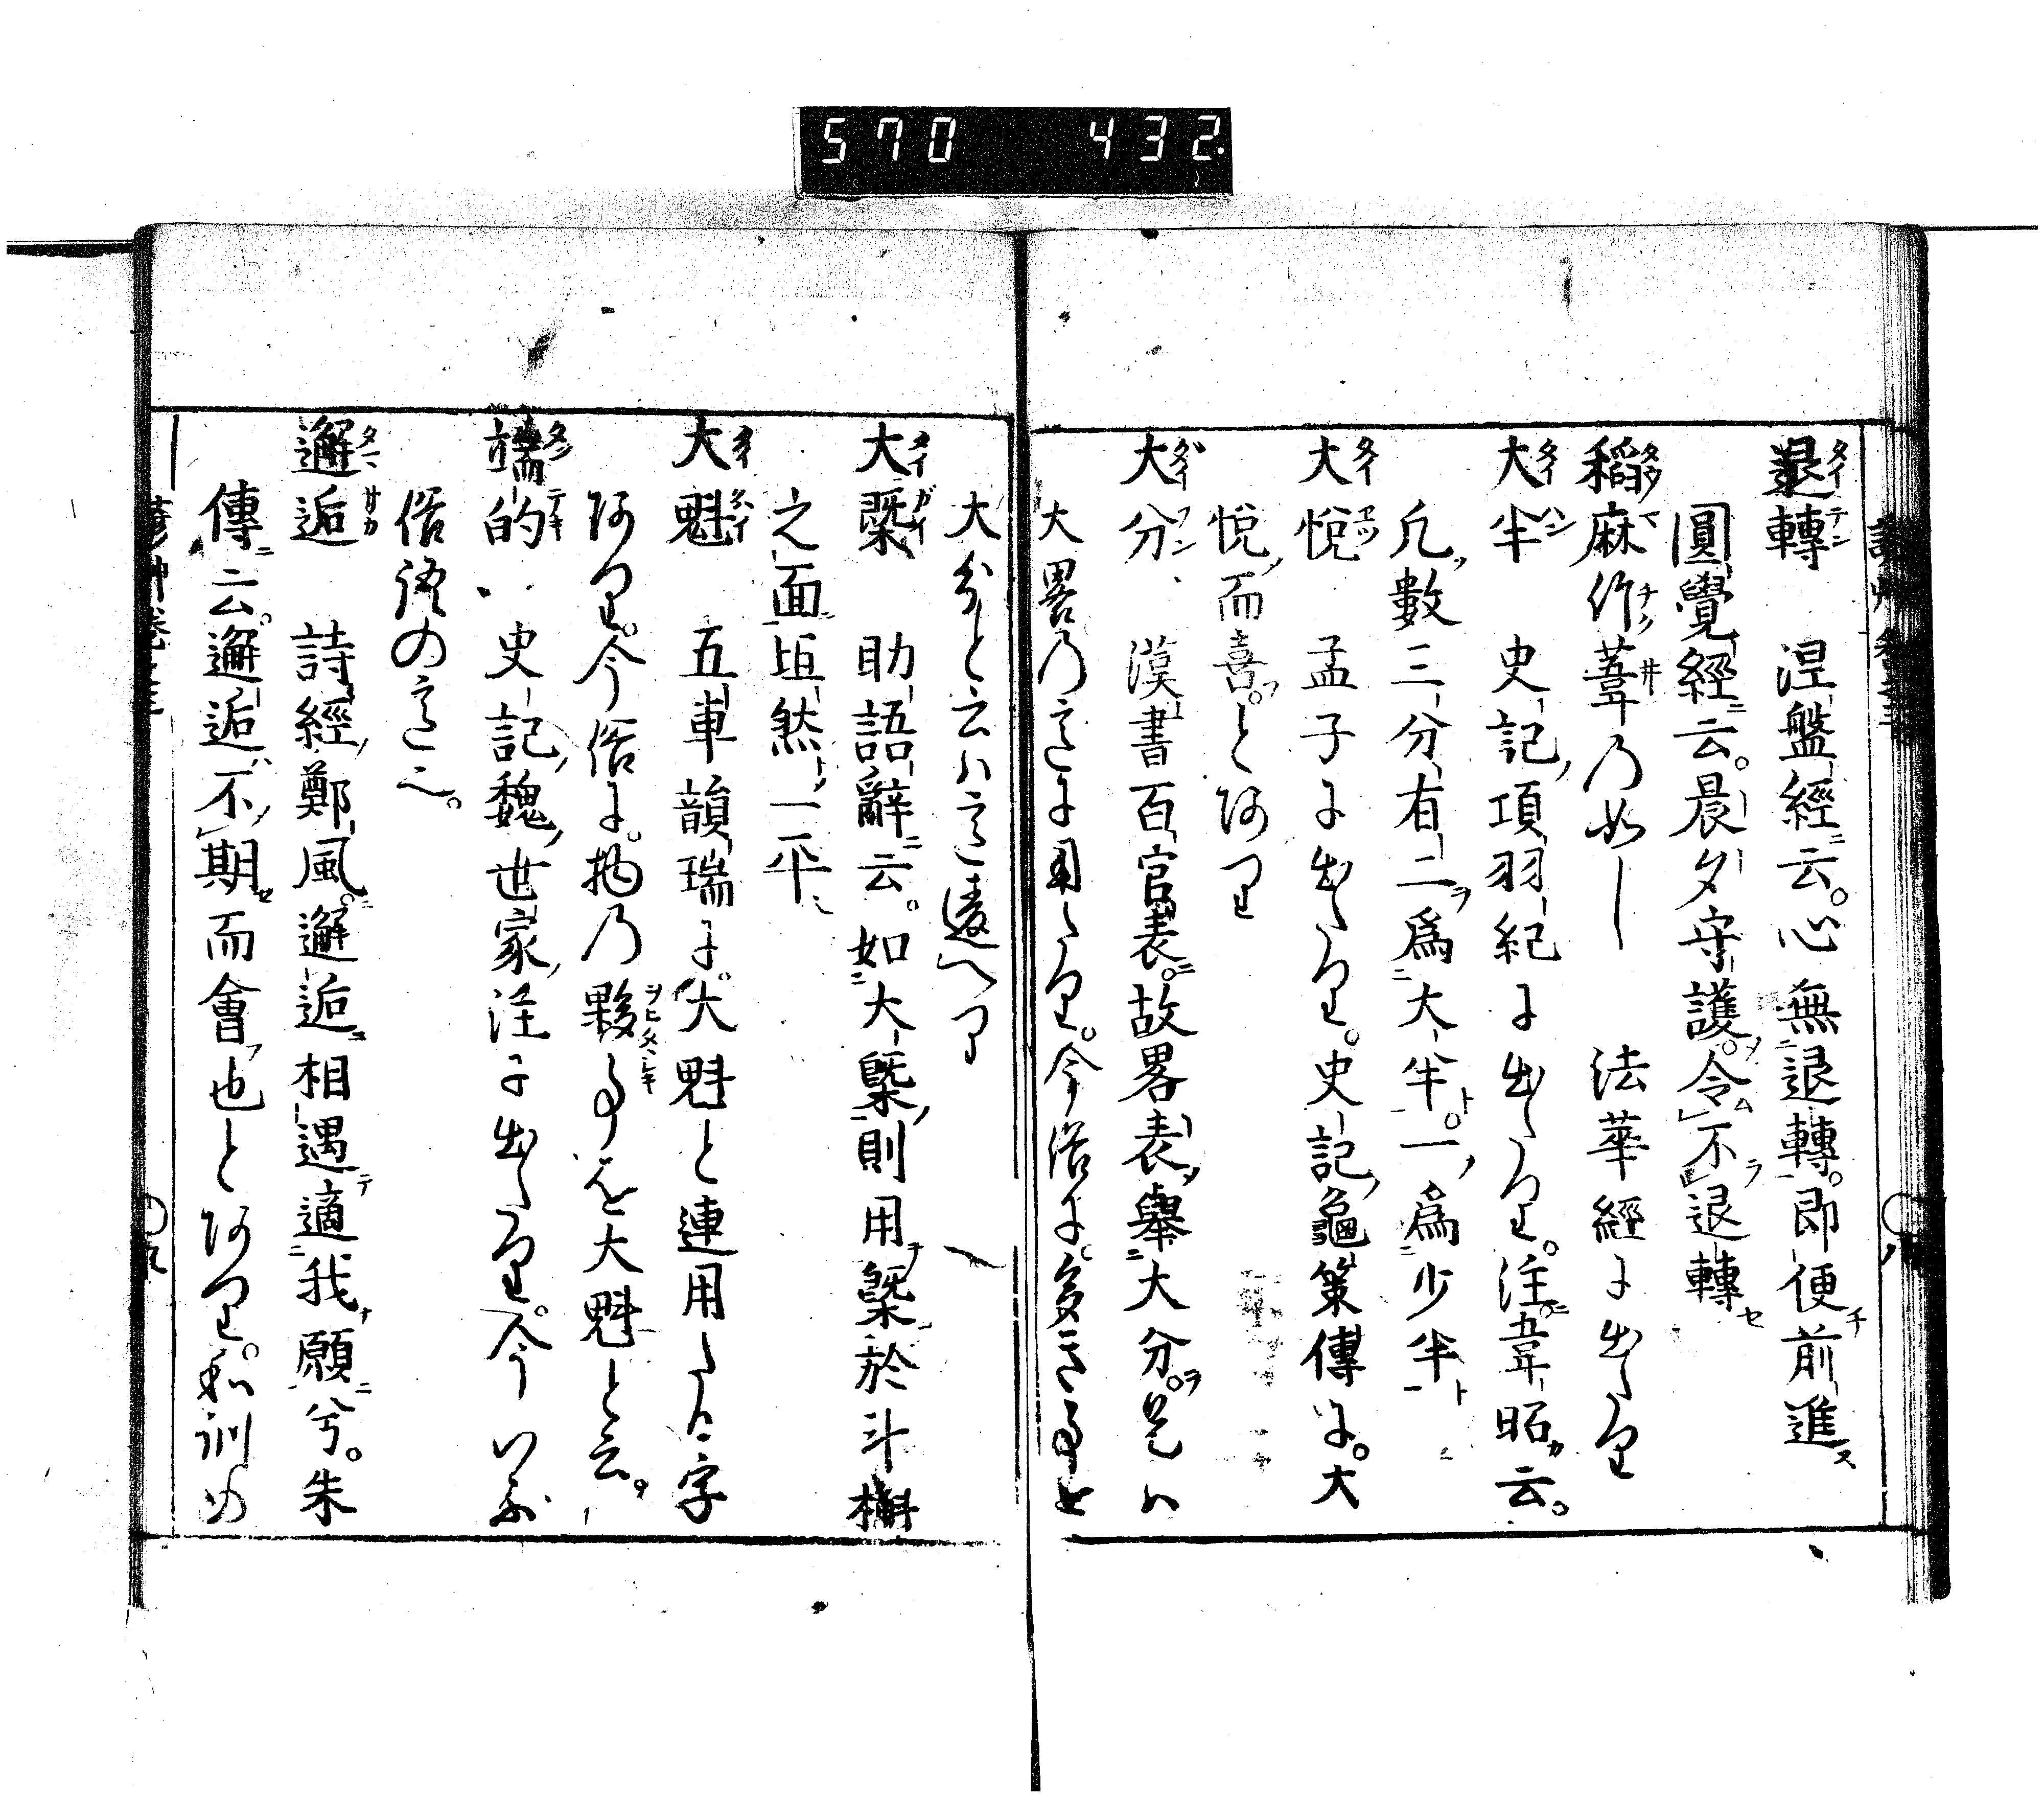 570 432
退轉 涅盤經云。心無退轉。即便前進
圓覺經云。晨夕守護。令不退轉
稻麻作葦乃如し 法華經に出たり
大半 史記項羽紀に出たり。注韋昭云。
凡數三分有二爲大半。一爲少半
大悦 孟子に出たり。史記龜策傳に。大
悦而喜。とあり
大分 漢書百官表。故畧表舉大分。是ハ
大畧乃意に用たり。今俗に。多き事を
大分と云ハ意違へり
大槩 助語辭云。如大槩則用槩於斗槲
之面坦然一平
大魁 五車韻瑞に。大魁と連用したる字
あり。今俗に。物乃夥き事を大魁と云。
端的 史記魏世家注に出たり。今いふ
俗語の意也。
邂逅 詩經鄭風。邂逅相遇適我願兮。朱
傳云。邂逅不期而會也とあり。和訓の